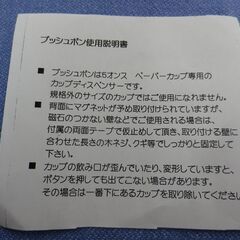 プッシュポン使用説明書
■ プッシュポンは5オンス ペーパーカップ専用の
カップディスペンサーです。
規格外のサイズのカップではご使用になれません。
■ 背面にマグネットが予め取り付けられていますが、
磁石のつかない壁などでご使用される場合は、
付属の両面テープで仮止めして頂き、取り付ける壁に
合わせた長さの木ネジ、クギ等でしっかりと固定して
下さい。
■ カップの飲み口が歪んでいたり、変形していますと、
ボタンを押しても出てこない場合があります。
その場合は一番下にあるカップを取り除いてください